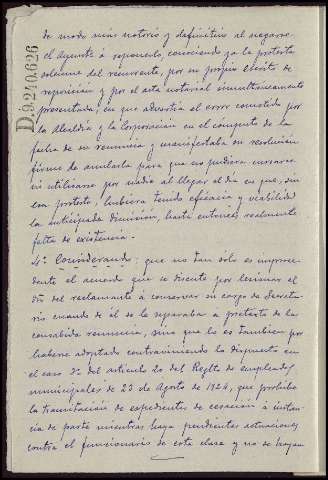 D.9.240.626
de modo más notorio y definitivo al negarse
el Ayunto. á reponerlo, conociendo ya la protesta
solemne del recurrente, por su propio escrito de
reposición y por el acta notarial simultáneamente
presentada, en que advertía el error cometido por
la Alcaldía y la Corporación en el cómputo de la
fecha de su renuncia y manifestaba su resolución
firme de anularla para que no pudiera cursarse
ni utilizarse por nadie al llegar el día en que, sin
esa protesta, hubiera tenido eficacia y viabilidad
la anticipada dimisión, hasta entonces realmente
falta de existencia.
4º Considerando: que no tan sólo es improce-
dente el acuerdo que se discute por lesionar el
dro. del reclamante á conservar su cargo de Secreta-
rio cuando de él se le separaba á pretexto de la
consabida renuncia, sino que lo es también por
haberse adoptado contraviniendo lo dispuesto en
el caso 2º del artículo 20 del Reglto. de empleados
municipales de 23 de Agosto de 1924, que prohibe
la tramitación de expedientes de cesación á instan-
cia de parte mientras haya pendientes actuaciones
contra el funcionario de esta clase y no se hayan